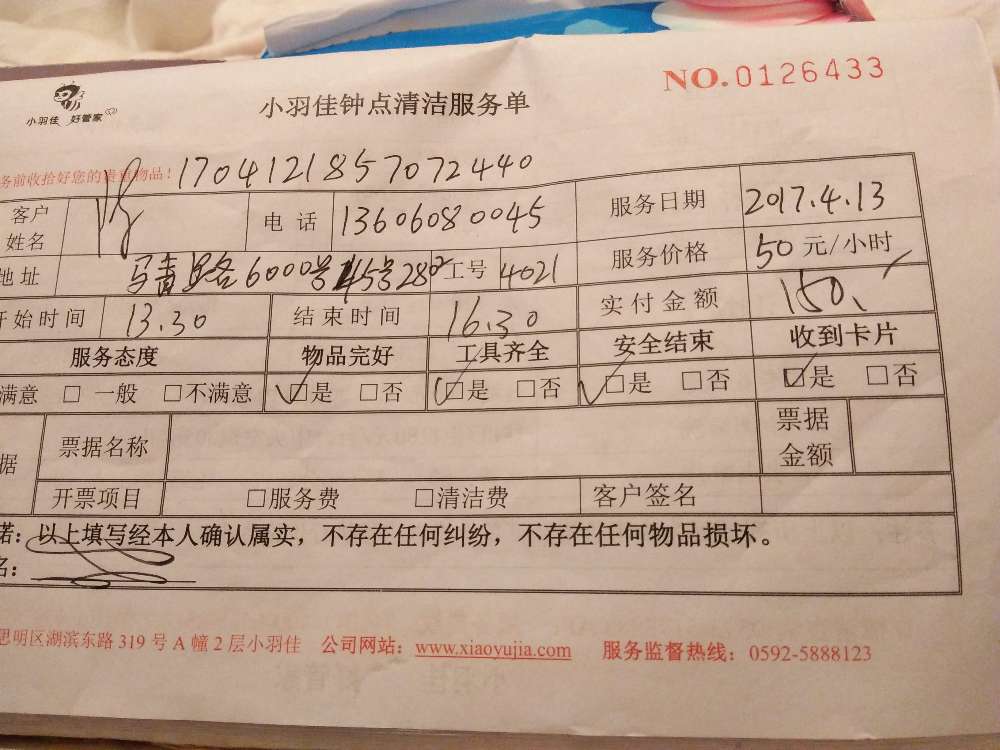 NO.0126433
小羽佳 好管家
小羽佳钟点清洁服务单
务前收拾好您的贵重物品！ 1704121857072440
客户姓名 电话 13606080045 服务日期 2017.4.13
地址 马青路6000号45号202 工号 4021 服务价格 50元/小时
开始时间 13.30 结束时间 16.30 实付金额 150
服务态度 物品完好 工具齐全 安全结束 收到卡片
满意 □ 一般 □不满意 ☑是 □否 ☑是 □否 ☑是 □否 ☑是 □否
据 票据名称 票据金额
开票项目 □服务费 □清洁费 客户签名
诺：以上填写经本人确认属实，不存在任何纠纷，不存在任何物品损坏。
名：
思明区湖滨东路 319 号 A 幢 2 层小羽佳 公司网站：www.xiaoyujia.com 服务监督热线：0592-5888123